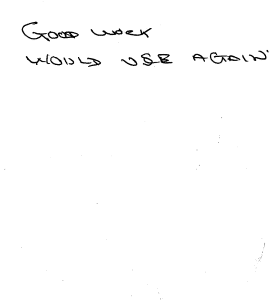 Good work
WOULD USE AGAIN